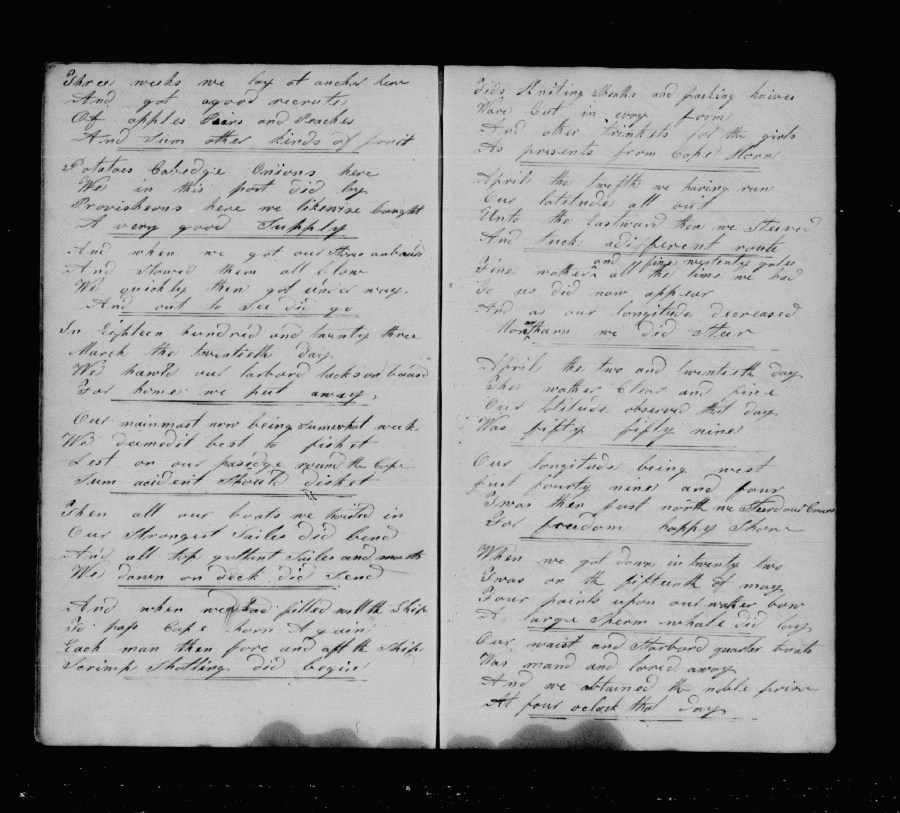 Three weeks we lay at anchor hear
And got agood recrute
Of apples Pairs and Peaches
And Sum other kinds of fruit
Potatoes Cabedge Oniions here
We in this port did by
Provisheons here we likewise bought
A very good Supply
And when we got our Store onboard
And Stowed them all blow
We quickly then got under way
And out to See did go
In Eighteen hundred and twenty three
March the twentieth day
We hawld our larbord tacks on board
For home we put away
Our mainmast now being Sumwhat weak
We deemedit best to fishet
Lest on our pasedge round the Cape
Sum acident Should disket
Then all our boats we twisted in
Our Strongest Sailes did bend
And all top gallent Sailes and masts
We down on deck did Send
And when we had filled well the Ship
To pass Cape horn Again
Each man then fore and aft the Ship
Scrimp Shotling did begin
Fids Kniting Sheaths and packing knives
Ware Cut in evry form
And other trinkets for the girls
As presents from Cape Horn
April the twefth we having run
Our latitude all out
Unto the Eastward then we Steured
And tuck adiferent route
and fine westerly gales
Fine wather all the time we had
To us did now appear
And as our longitude decreased
Northarn we did Steer
April the two and twentieth day
The wather Clear and fine
Our latitude observed that day
Was fifty fifty nine
Our longitude being west
Just fourty nine and four
Twas then just north we Steerd our Cours
For freedom happy Shore
When we got down in twenty two
Twas on the fifteenth of may
Four points upon our wather bow
A large Sperm whale did lay
Our waist and Starbord quarter boats
Was mand and lored away
And we obtained the noble prise
At four oclock that day